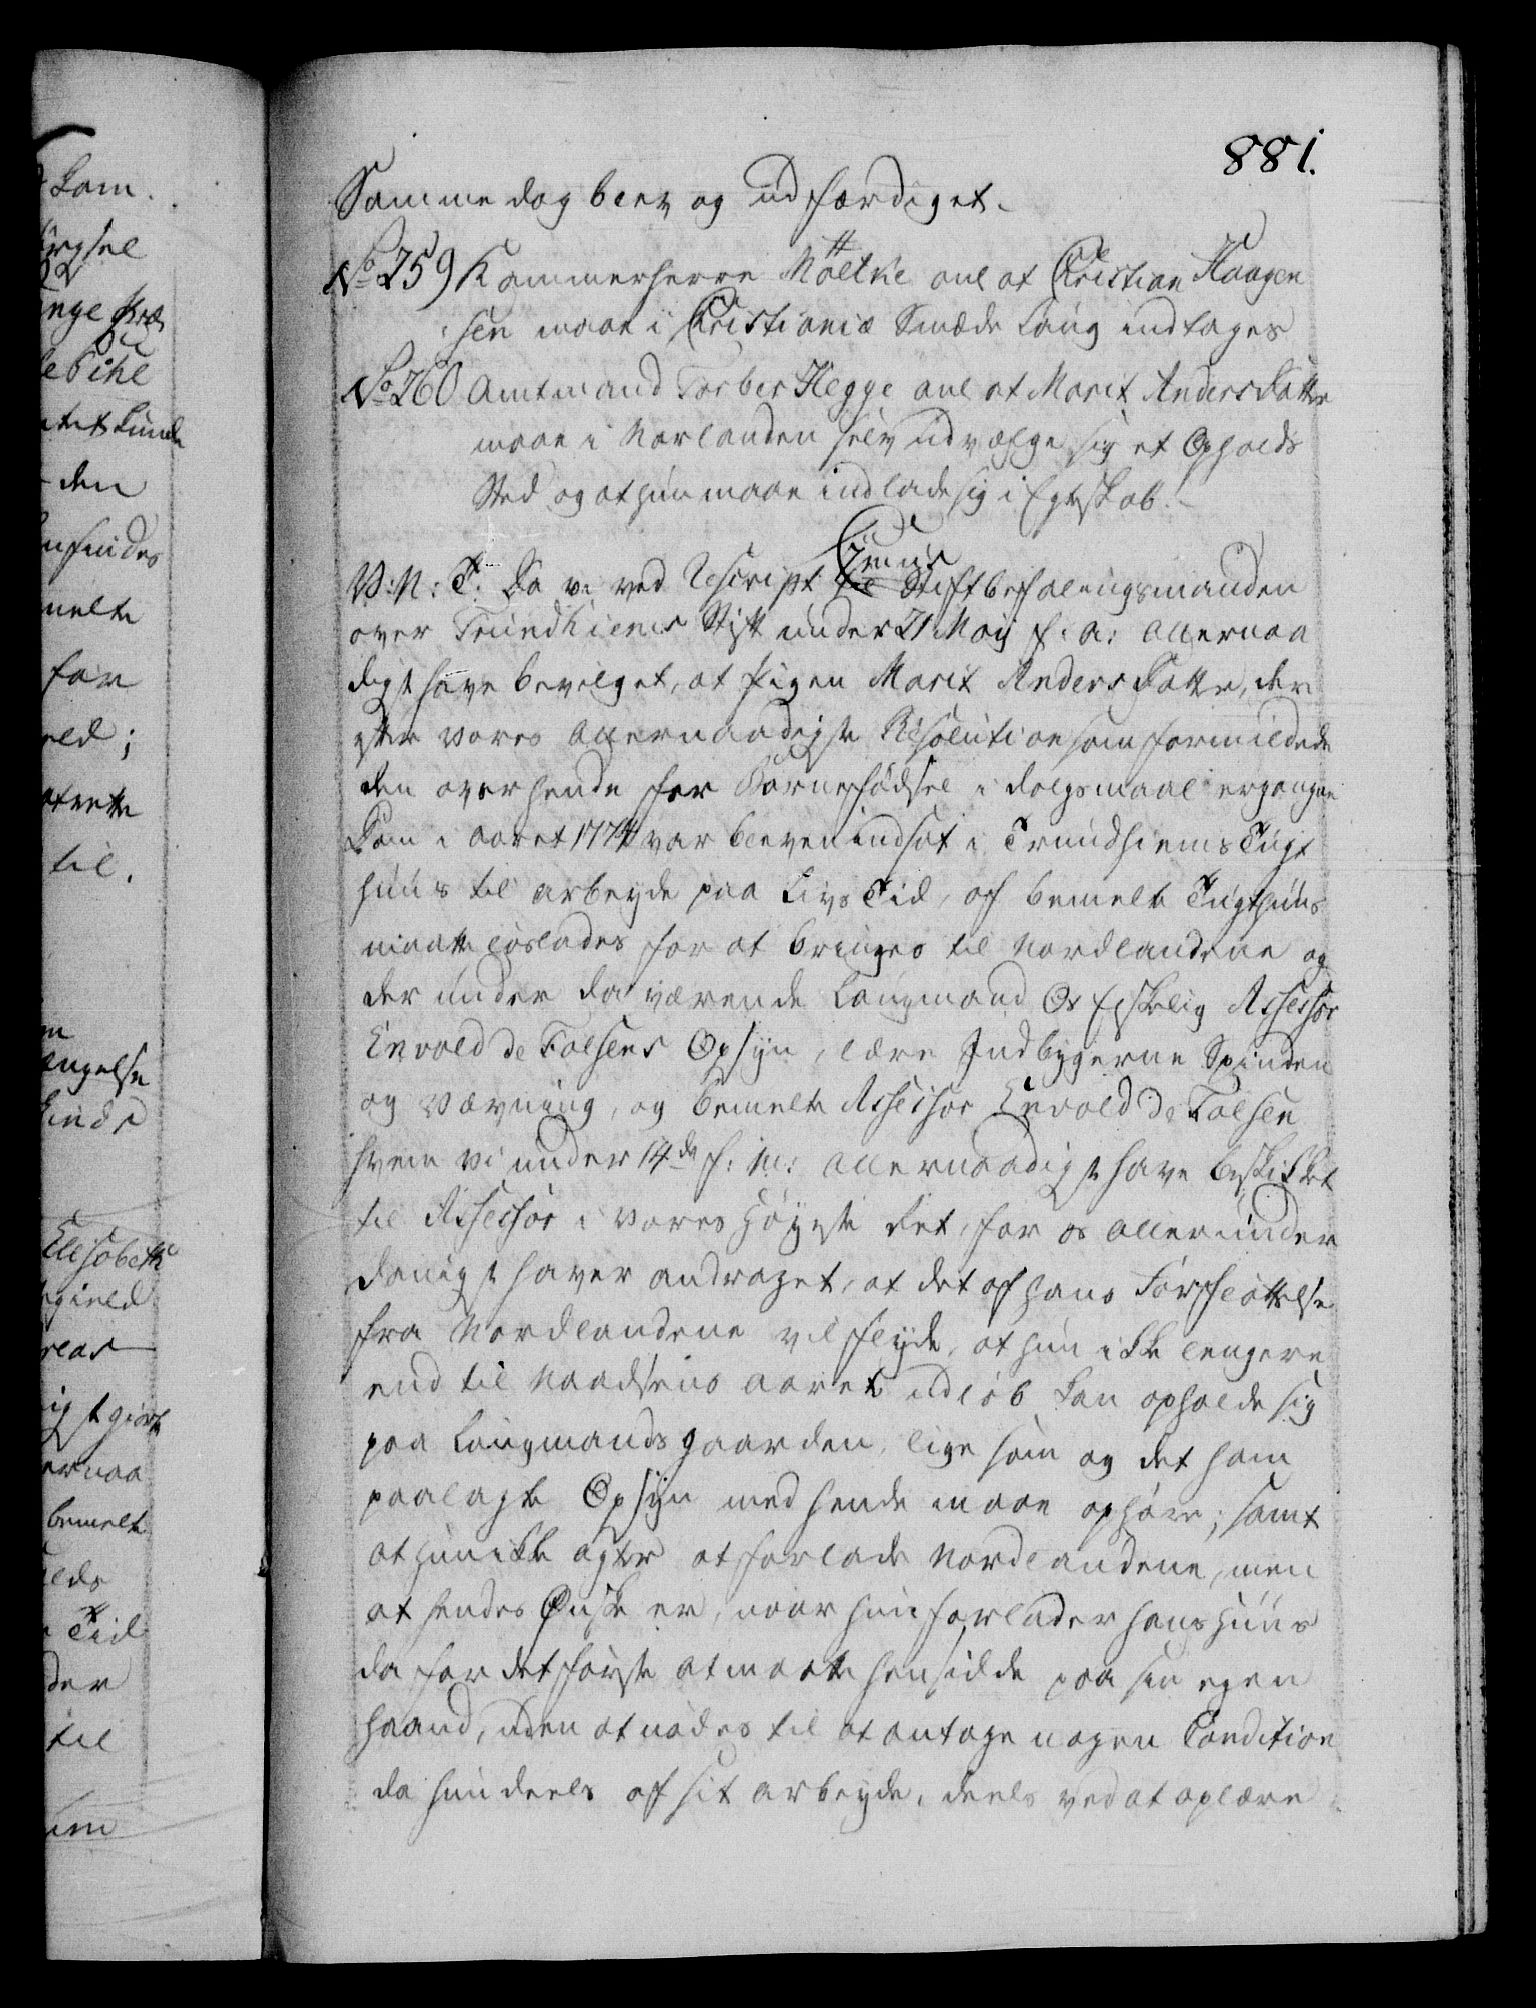 881.
Samme dag blev og udfærdiget.
No 259 Kammerherre Moltke anl at Christian Haagen
sen maae i Christiania Smæde Laug indtages
No 260 Amtmand Torber Hegge anl at Marit Anders Datter
maae i Norlanden selv udvælge sig et Opholds
Sted og at hun maae indlade sig i Egteskab.
V: N: T: Da vi ved Rescript til Stiftbefalingsmanden
over Trundhiems Stift under 21 Maij f: A: allernaa
digst have bevilget, at Pigen Marit Anders Datter, der
efter vores allernaadigste Resolution som formildede
den over hende for Børnefødsel i dølgsmaal ergangne
Dom i Aaret 1774 var bleven indsat i Trundhiems Tugt
huus til arbeyde paa Livs Tid, af bemelte Tugthuus
maatte løslades for at bringes til Nordlandene og
der under da værende Laugmand Os Elskelig Assessor
Envold de Falsens Opsyn, lære Indbyggerne Spinden
og Vævning, og bemelte Assessor Envold de Falsen
hvem vi under 14de f: M: allernaadigst have beskikket
til Assessor i vores Høyeste Ret, for os allerunder
danigst haver andraget, at det af hans Forfløttelse
fra Nordlandene vil flyde, at hun ikke lengere
end til Aarets udløb kan opholde sig
paa Laugmands gaarden, lige som og det ham
paalagte Opsyn med hende maae ophøre; samt
at hun ikke agter at forlade Nordlandene, men
at hendes Ønske er, naar hun forlader hans Huus
da for det første at maatte hensidde paa sin egen
haand, uden at nødes til at antage nogen Condition
da hun deels af sit arbeyde, deels ved at oplære